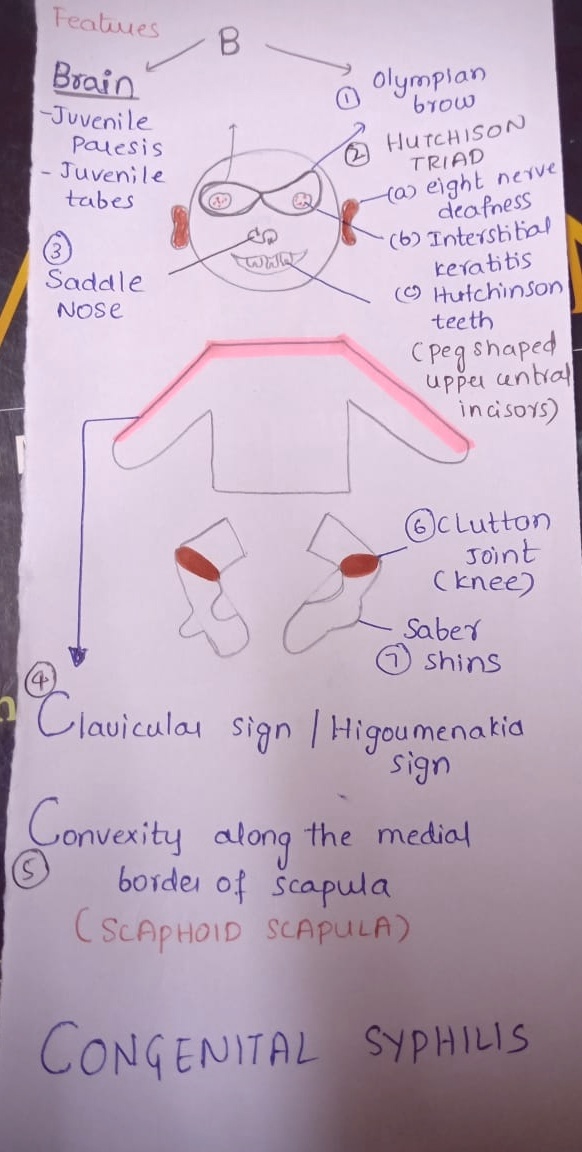 Features
B
Brain
-Juvenile
Paresis
- Juvenile
tabes
① Olympian
brow
② HUTCHISON
TRIAD
(a) eight nerve
deafness
(b) Interstitial
keratitis
(c) Hutchinson
teeth
(peg shaped
upper central
incisors)
③
Saddle
NOSE
⑥ Clutton
Joint
(knee)
Saber
⑦ shins
④
Clavicular sign / Higoumenakia
sign
Convexity along the medial
⑤ border of scapula
(SCAPHOID SCAPULA)
CONGENITAL SYPHILIS